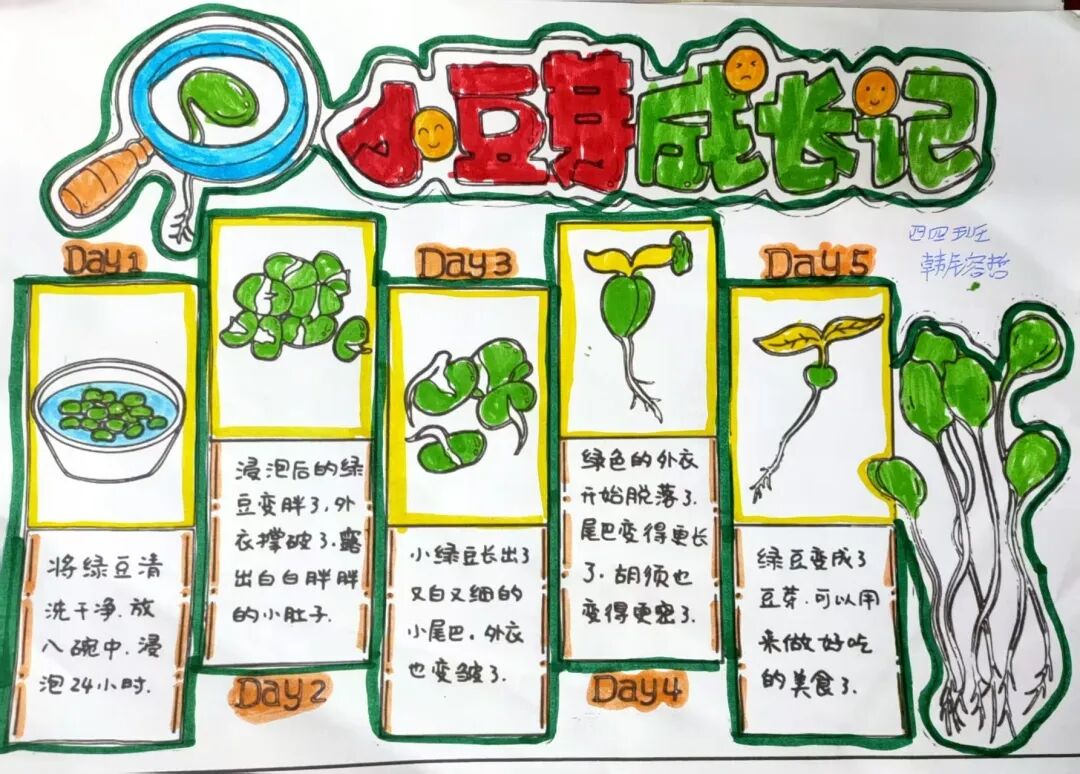 小豆芽成长记
四四班
Day 1
将绿豆清
洗干净.放
入碗中.浸
泡24小时.
浸泡后的绿
豆变胖了,外
衣撑破了.露
出白白胖胖
的小肚子.
Day2
Day3
小绿豆长出了
又白又细的
小尾巴。外衣
也变皱了.
绿色的外衣
开始脱落了.
尾巴变得更长
了.胡须也
变得更密了.
Day4
Day5
绿豆变成了
豆芽.可以用
来做好吃
的美食了.